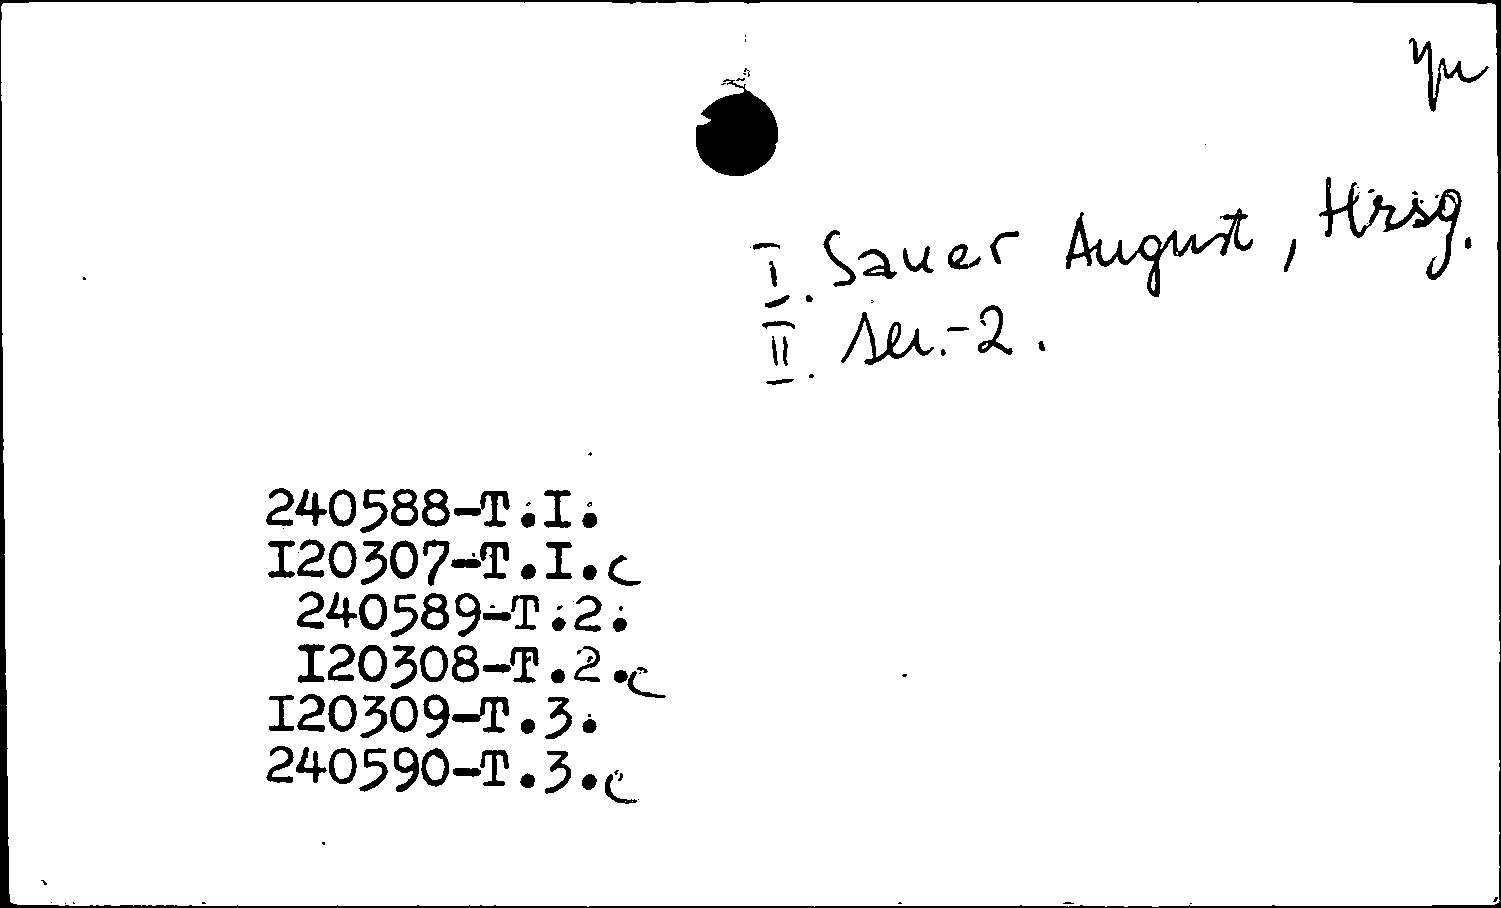 I. Sauer August, Hrsg.
II. ser.-2.
240588-T.I.
I20307-T.I.c
240589-T.2.
I20308-T.2.c
I20309-T.3.
240590-T.3.c